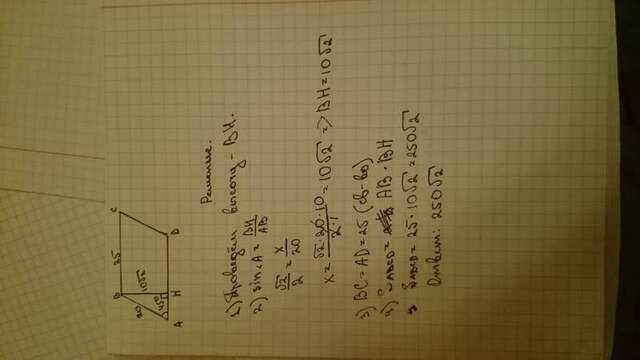 B 25 C
20 10√2
45°
A H D
Решение.
1) Проведём высоту - BH.
2) sin∠A = BH/AB
√2/2 = x/20
x = √2·20·10/2·1 = 10√2 => BH = 10√2
3) BC = AD = 25 (св-во)
4) SABCD = AB · BH
SABCD = 25 · 10√2 = 250√2
Ответ: 250√2